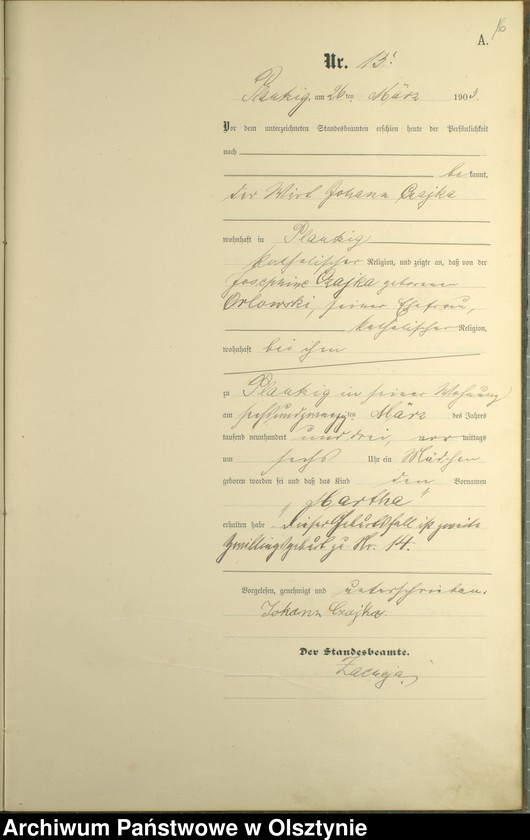 A.
Nr. 15.
Plautzig, am 26ten März 1903.
Vor dem unterzeichneten Standesbeamten erschien heute der Persönlichkeit
nach
be kannt,
der Wirt Johann Czajka
wohnhaft in Plautzig
katholischer Religion, und zeigte an, daß von der
Josephine Czajka geborenen
Orlowski, seiner Ehefrau,
katholischer Religion,
wohnhaft bei ihm
zu Plautzig in seiner Wohnung
am sechsundzwanzigten März des Jahres
tausend neunhundert und drei, vor mittags
um sechs Uhr ein Mädchen
geboren worden sei und daß das Kind den Vornamen
„Martha"
erhalten habe. Dieser Geburtsfall ist zweite
Zwillingsgeburt zu Nr. 14.
Vorgelesen, genehmigt und unterschrieben.
Johann Czajka.
Der Standesbeamte.
Archiwum Państwowe w Olsztynie